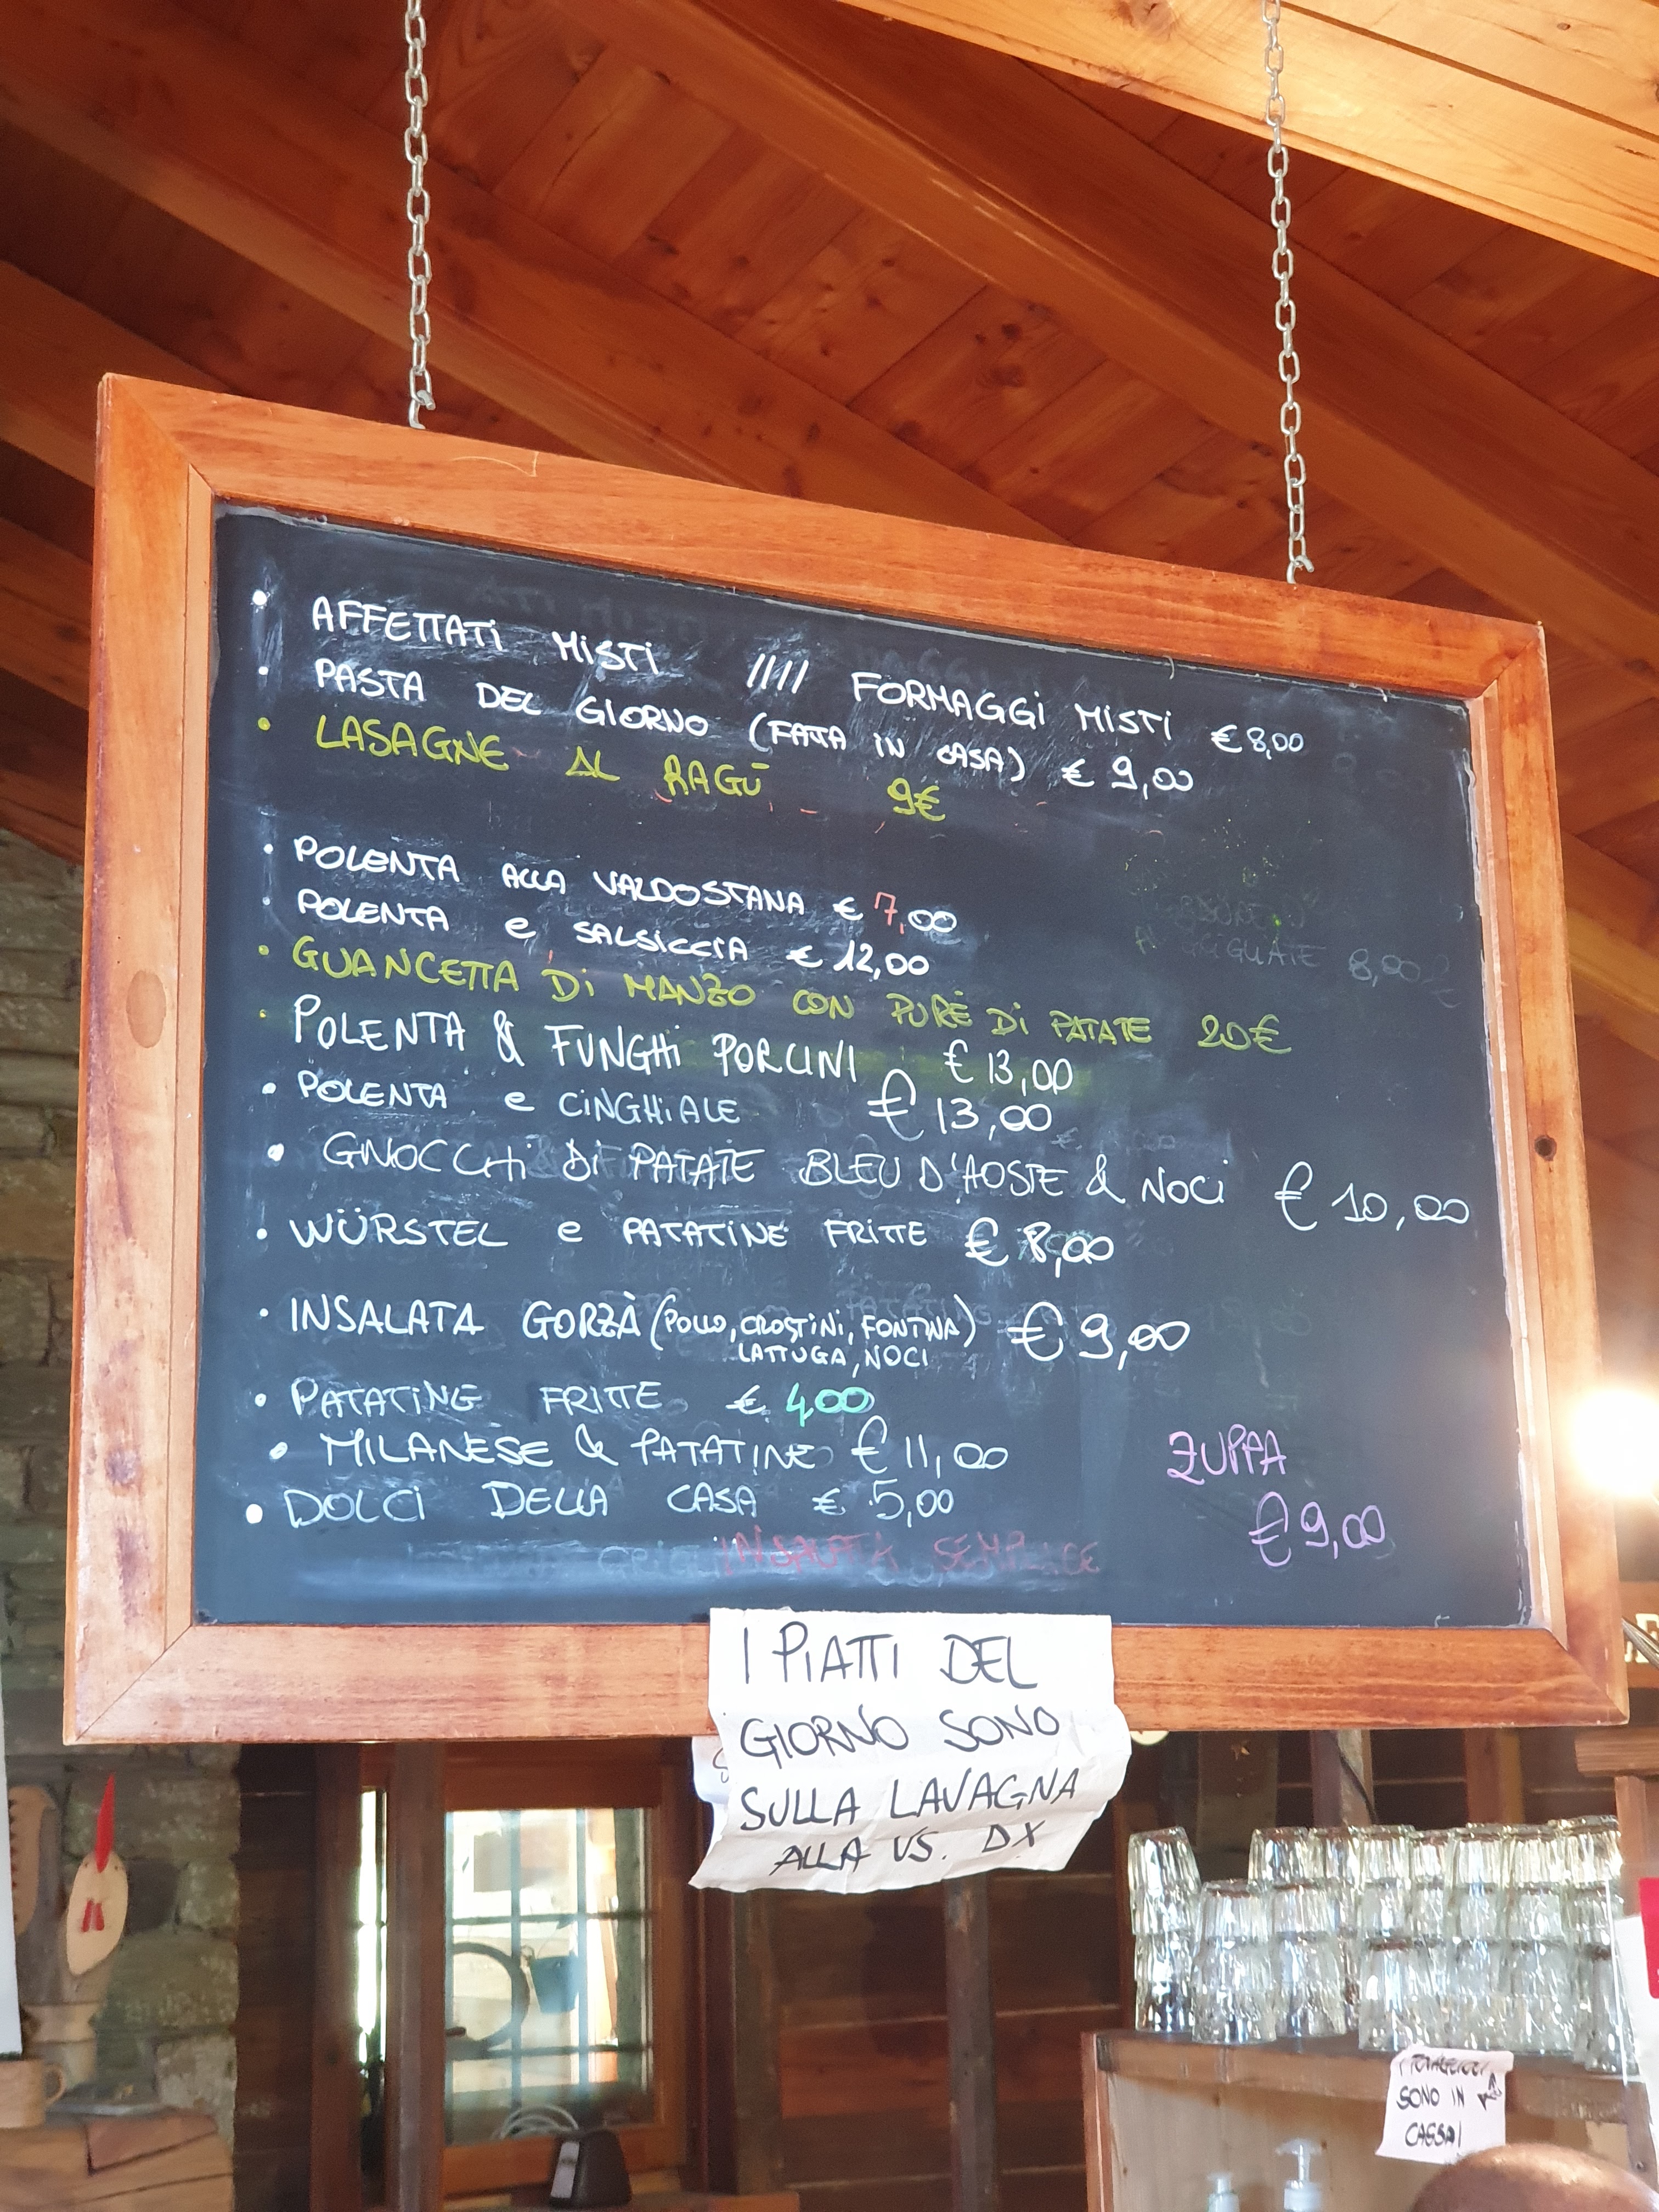 • AFFETTATI MISTI //// FORMAGGI MISTI € 8,00
• PASTA DEL GIORNO (FATTA IN CASA) € 9,00
• LASAGNE AL RAGÙ 9€
• POLENTA ALLA VALDOSTANA € 7,00
• POLENTA e SALSICCIA € 12,00
• GUANCETTA Di MANZO CON PURÈ Di PATATE 20€
• POLENTA & FUNGHI PORCINI € 13,00
• POLENTA e CINGHIALE € 13,00
• GNOCCHi Di PATATE BLEU D'AOSTE & NOCI € 10,00
• WÜRSTEL e PATATINE FRITTE € 8,00
• INSALATA GORZÀ (POLLO, CROSTINI, FONTINA)
LATTUGA, NOCI € 9,00
• PATATINE FRITTE € 4,00
• MILANESE & PATATINE € 11,00
• DOLCI DELLA CASA € 5,00
ZUPPA
€ 9,00
INSALATA SEMPLICE
I PIATTI DEL
GIORNO SONO
SULLA LAVAGNA
ALLA VS. DX
I TOVAGLIOLI
SONO IN
CASSA!